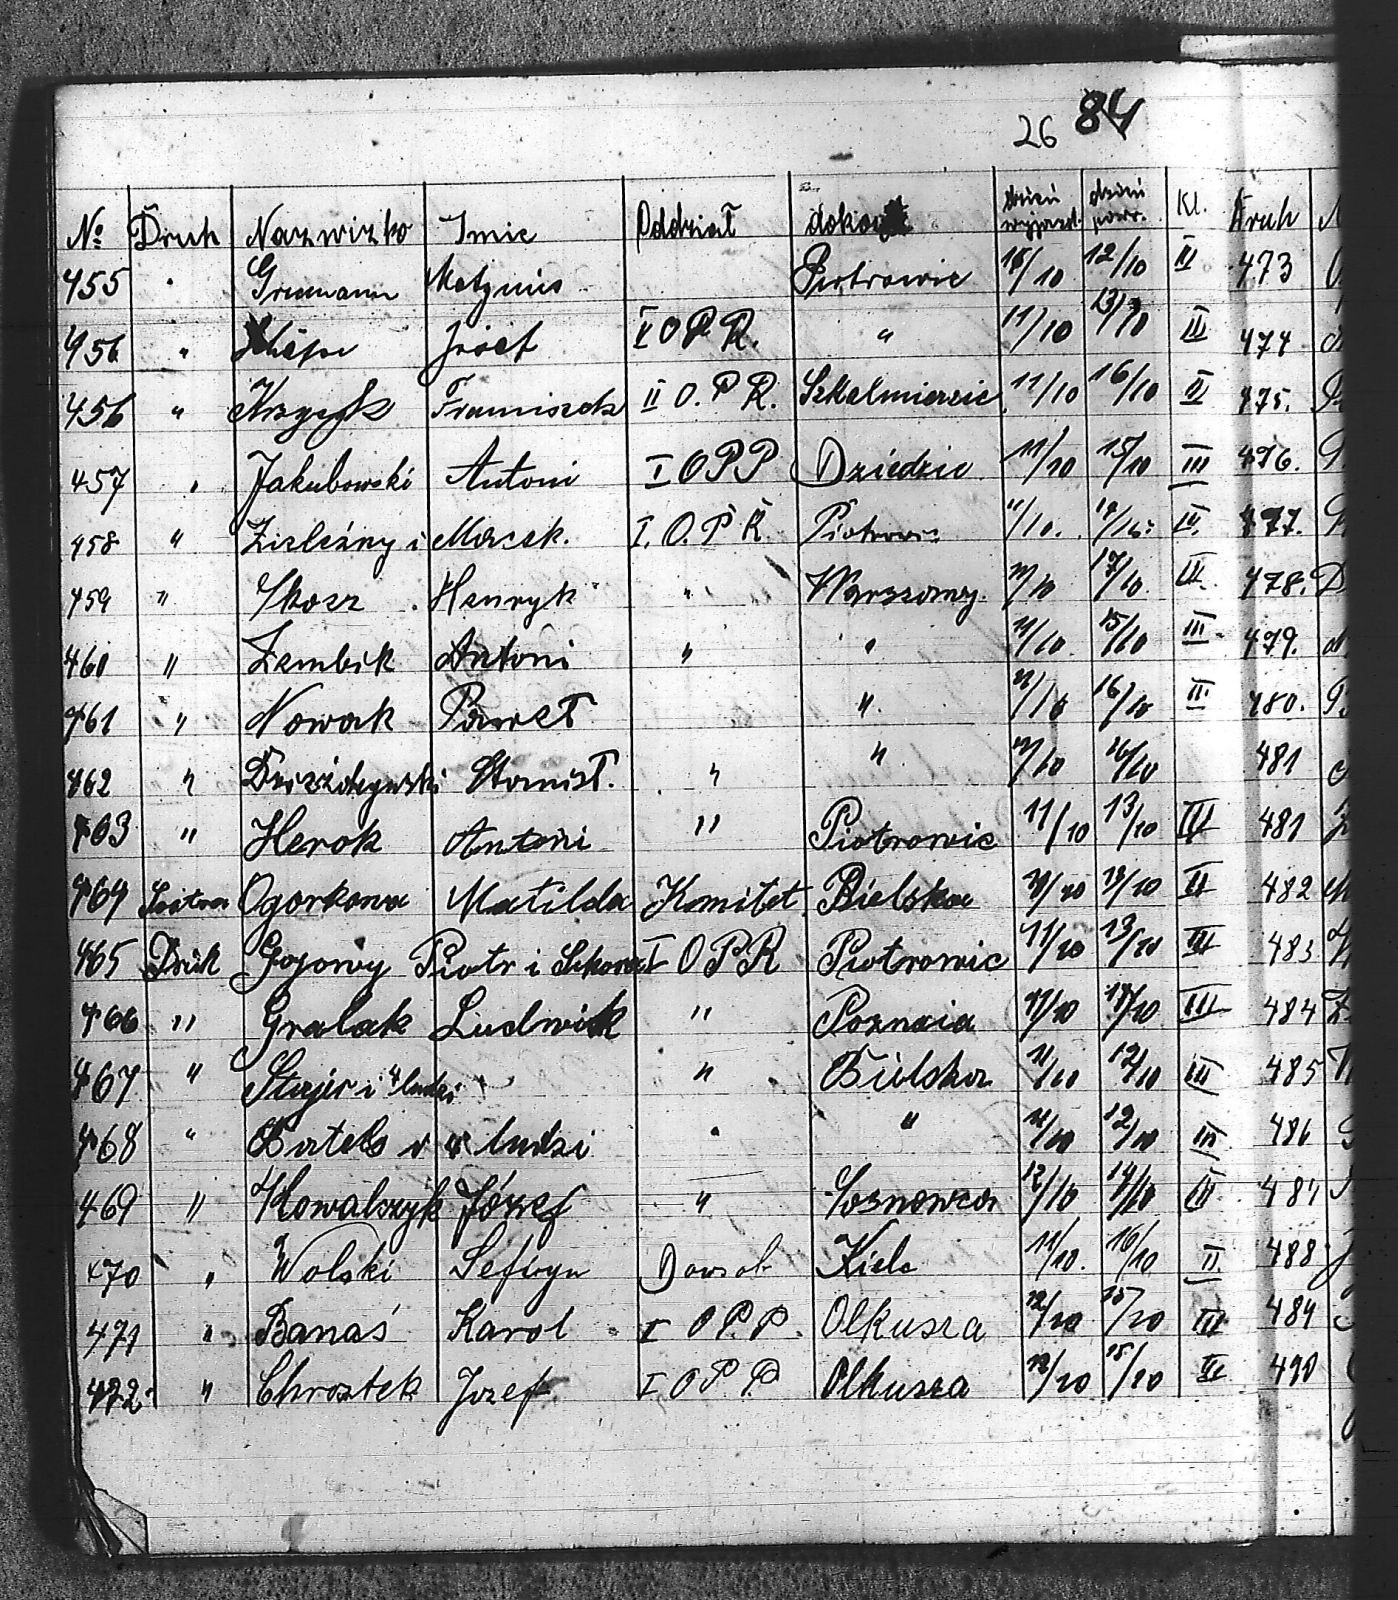 26 84
No Druh Nazwizko Imie Oddział dokąd dzień wyjazd. dzień powr. Kl. Druh
455 " Grumann Piotrowic /10 12/10 III 473
456 " Józef II O P R. " 11/10 13/10 III 474
456 " Krzyżyk Franciszek II O. P R. Szkalmierzic 11/10 16/10 II 475.
457 " Jakubowski Antoni I O P P Dziedzic 11/10 15/10 III 476.
458 " Zieleźny i Maczk. I. O. P R Piotrowic 11/10. 477.
459 " Skosz Henryk " Warszawy. /10 17/10 III. 478.
460 " Zembik Antoni " " 11/10 15/10 III 479.
461 " Nowak Paweł " /10 16/10 II 480.
462 " Stanisł. " " /10 16/10 481
463 " Herok Antoni " Piotrowic 11/10 13/10 III 481
464 Ogorkowa Matilda Komitet Bielska /10 /10 II 482
465 Druh Gojowy Piotr i Sikora I O P R Piotrowic 11/10 13/10 III 483
466 " Gralak Ludwik " Poznaia /10 /10 III 484
467 " Stajer i 4 ludzi " Bielska 11/10 12/10 III 485
468 " Bartels i 4 ludzi " " /10 12/10 III 486
469 " Kowalszyk Józef " Sosnowca 12/10 14/10 III 487
470 " Wolski Kielc 11/10. 16/10 II. 488
471 " Banaś Karol I O P. P. Olkusza 12/10 15/10 III 489
472 " Chrostek Jozef I O P P Olkusza 12/10 15/10 III 490